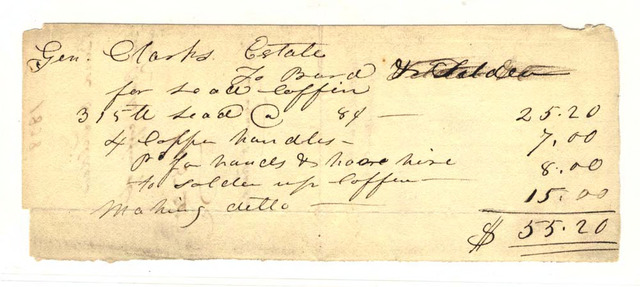 Gen. Clarks Estate
To Bard
for Lead Coffin
315 lb Lead @ 8¢ — 25.20
4 Coppe handles — 7.00
Pd for hands & horse hire 8.00
to solder up Coffin —
Making ditto — 15.00
$ 55.20